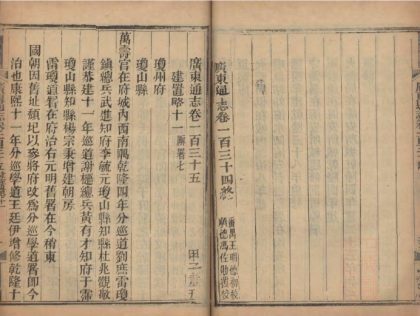 廣東通志卷一百三十四終
番禺王明德初校
順德馮佐勛覆校
廣東通志卷一百三十五
建置略十一 廨署七
瓊州府
瓊山縣
萬壽宮在府城內西南隅乾隆四年分巡道劉庶雷瓊
鎮總兵武進知府李毓元瓊山縣知縣杜兆觀敬
謹恭建十一年巡道謝樞總兵黃有才知府于霈
瓊山縣知縣楊宗秉增建朝房
雷瓊道署在府治右元明舊署在今稍東
國朝因舊址傾圮以參將府改為分巡學道署即今
治也康熙十一年分巡學道王廷伊增修乾隆十